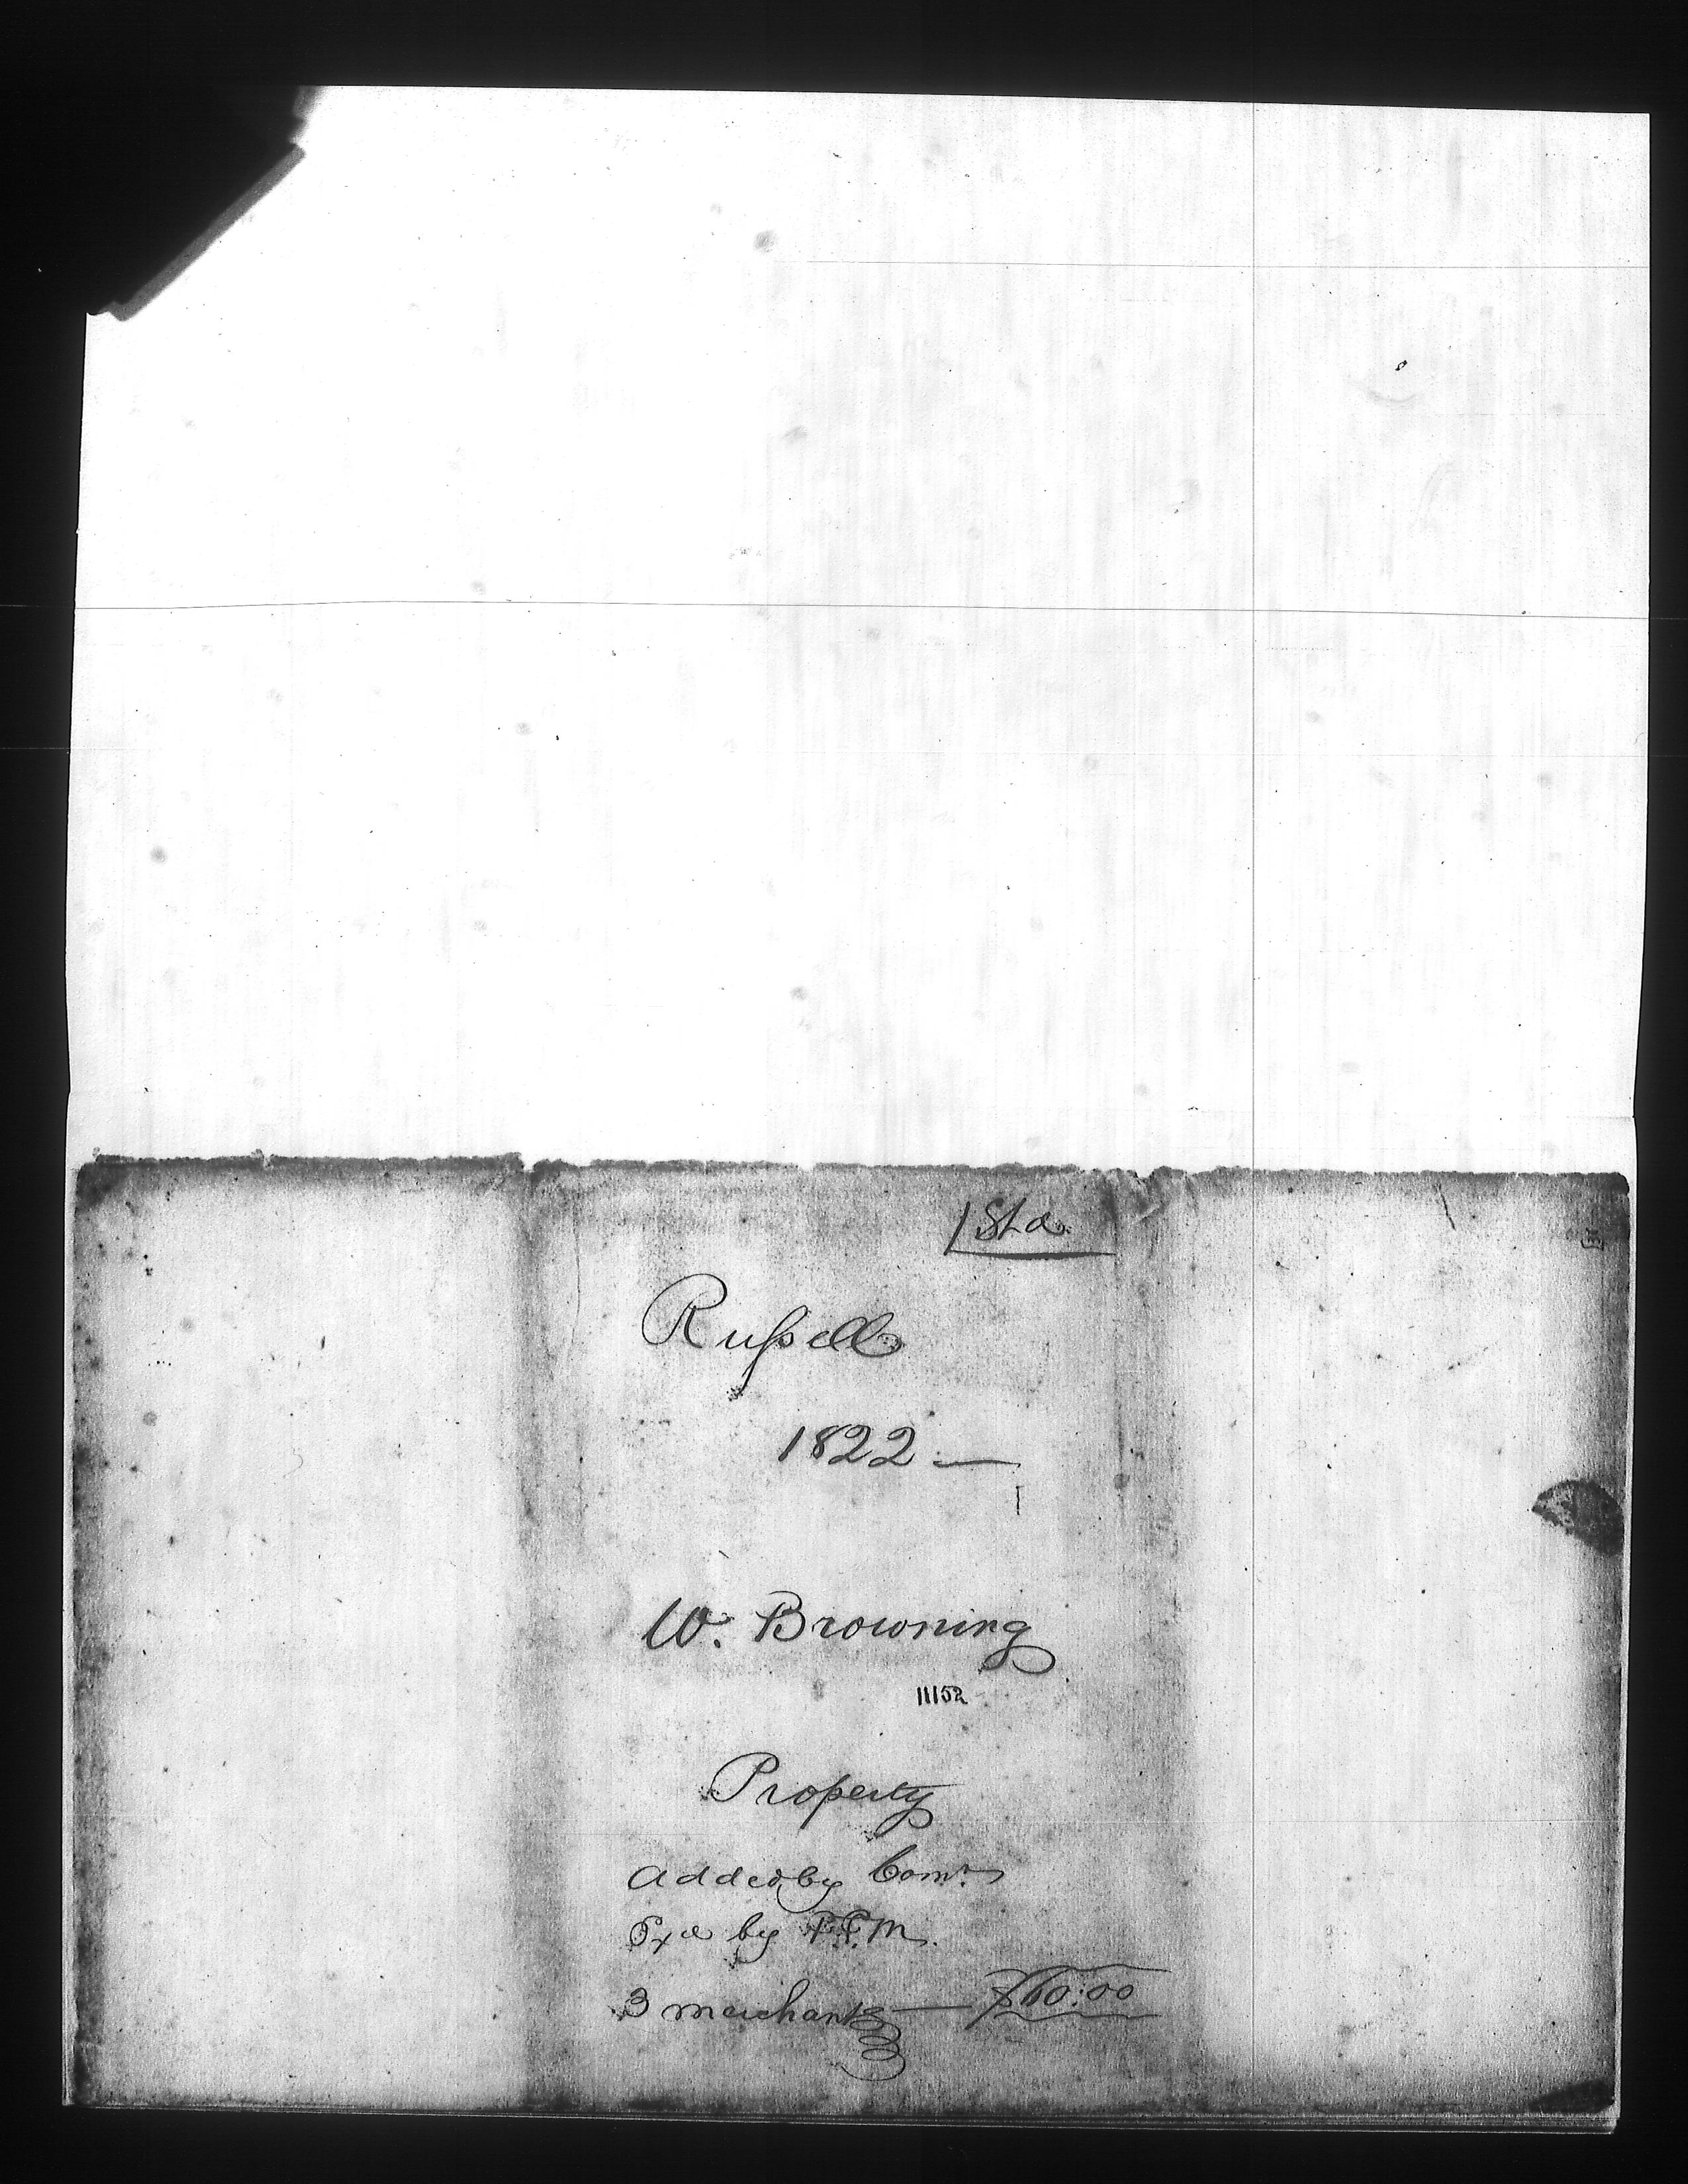 Russell
1822 —
W. Browning
11152
Property
Added by Comr.
by P.P.M.
3 merchants — $60:00